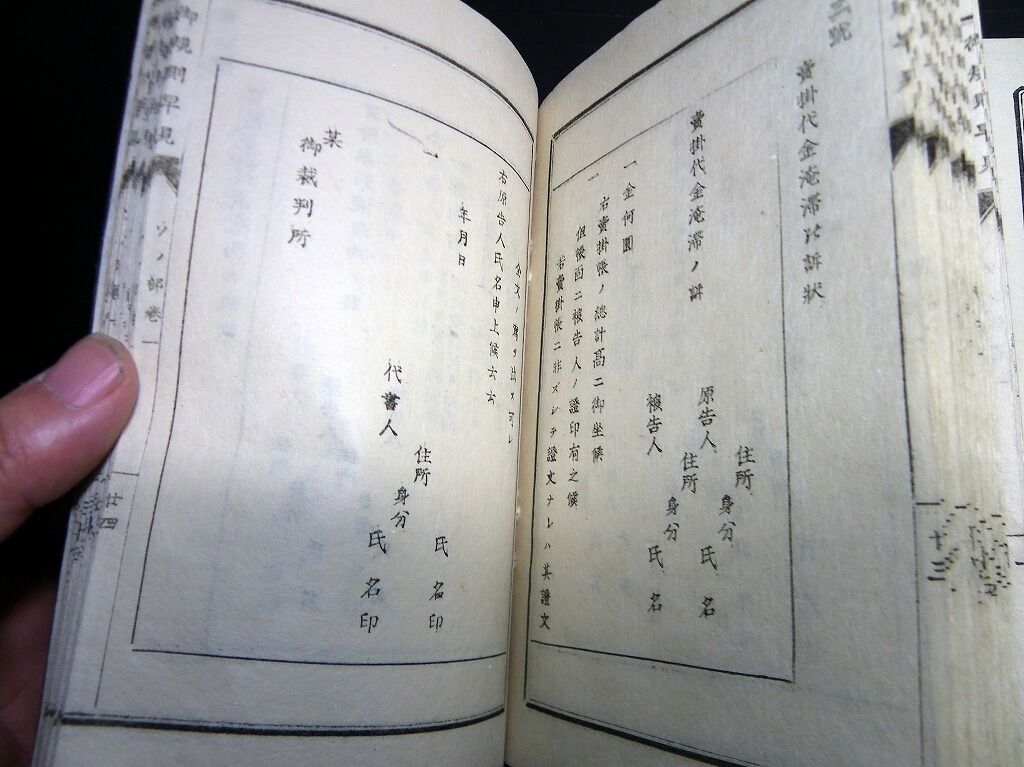 三號
賣掛代金淹滯ノ訴狀
賣掛代金淹滯ノ訴
住所
身分
原告人
氏名
住所
身分
被告人
氏名
一金何圓
右賣掛帳ノ總計高ニ御坐候
一
但帳面ニ被告人ノ證印有之候
若賣掛帳ニ非ズシテ證文ナレハ其證文
全文ノ寫ヲ出ス可シ
右原告人氏名申上候云云
一
年月日
住所
身分
氏名印
代書人
氏名印
某
御裁判所
御規則早見
ソノ部卷一
廿四
十三